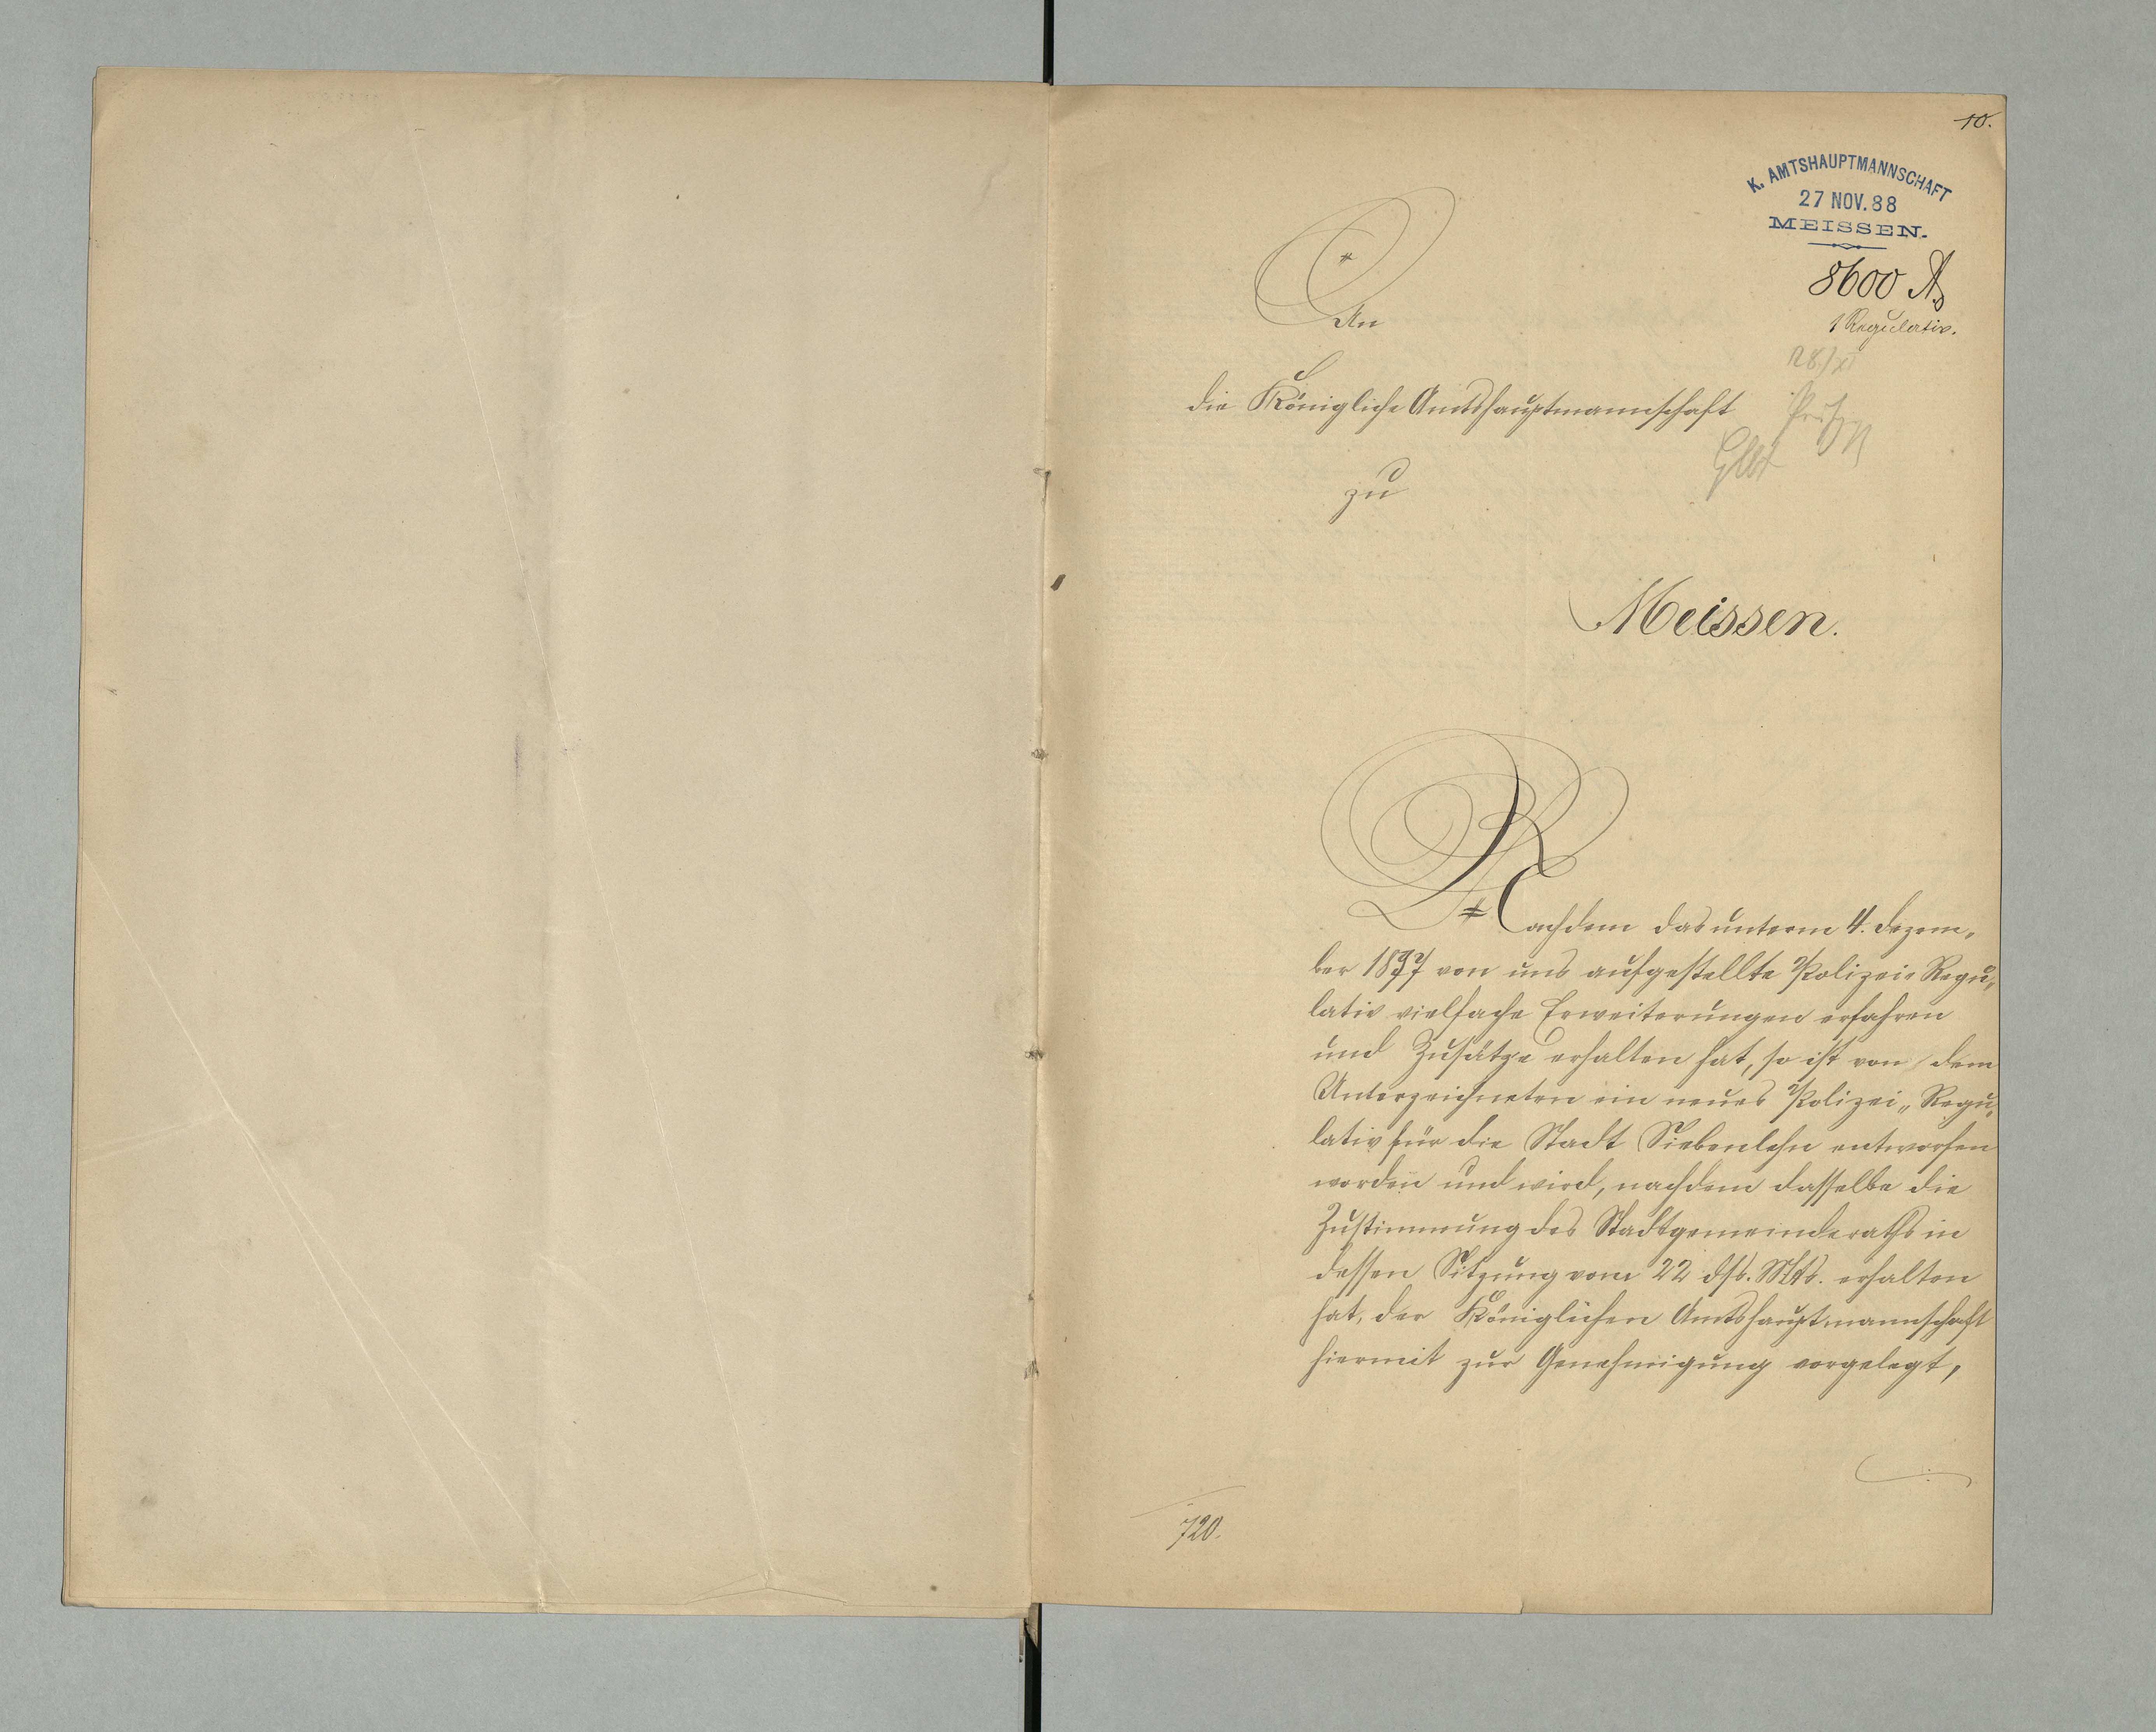 10.
K. AMTSHAUPTMANNSCHAFT
27 NOV. 88
MEISSEN.
8600 A
1 Regulativ.
28./XI
An
die Königliche Amtshauptmannschaft
zu
Meissen.
Nachdem das unterm 4. Dezem-
ber 1877 von uns aufgestellte Polizei-Regu-
lativ vielfache Erweiterungen erfahren
und Zusätze erhalten hat, so ist von dem
Unterzeichneten ein neues Polizei-Regu-
lativ für die Stadt Siebenlehn entworfen
worden und wird, nachdem dasselbe die
Zustimmung des Stadtgemeinderaths in
dessen Sitzung vom 22 dss. Mts. erhalten
hat, der Königlichen Amtshauptmannschaft
hiermit zur Genehmigung vorgelegt,
720.